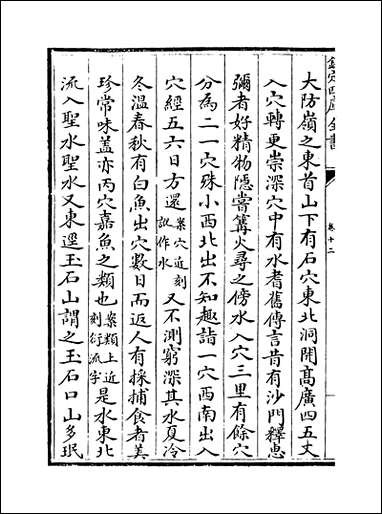 欽定四庫全書
卷十二
大防嶺之東首山下有石穴東北洞開髙廣四五丈
入穴轉更崇深穴中有水耆舊傳言昔有沙門釋惠
彌者好精物隠嘗篝火尋之傍水入穴三里有餘穴
分為二一穴殊小西北出不知趣詣一穴西南出入
穴經五六日方還案穴近刻訛作水又不測窮深其水夏冷
冬温春秋有白魚出穴數日而返人有採捕食者美
珍常味盖亦丙穴嘉魚之類也案類上近刻衍流字是水東北
流入聖水聖水又東逕玉石山謂之玉石口山多珉